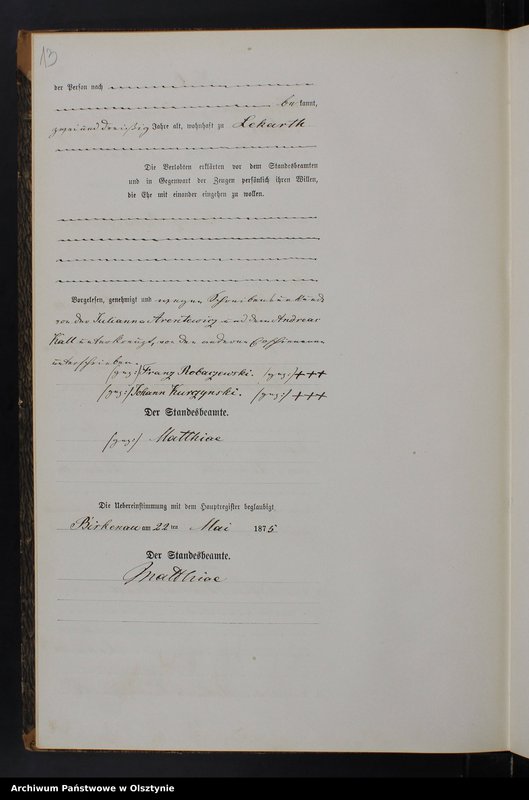 13
der Person nach
bekannt,
zwei und dreißig Jahre alt, wohnhaft zu Lekarth
Die Verlobten erklärten vor dem Standesbeamten
und in Gegenwart der Zeugen persönlich ihren Willen,
die Ehe mit einander eingehen zu wollen.
Vorgelesen, genehmigt und wegen Schreibensunkunde
von der Julianna Arentewicz und dem Andreas
Kall unterkreuzt, von den anderen Erschienenen
unterschrieben.
(gez:) Franz Robaczewski. (gez:) +++
(gez:) Johann Kurzynski. (gez:) +++
Der Standesbeamte.
(gez:) Matthiae
Die Uebereinstimmung mit dem Hauptregister beglaubigt
Birkenau am 22 ten Mai 1875
Der Standesbeamte.
Matthiae
Archiwum Państwowe w Olsztynie